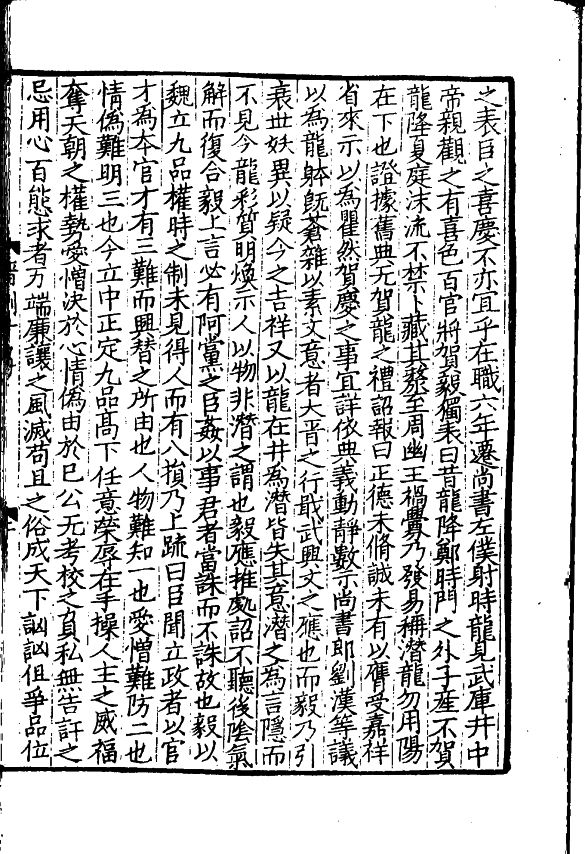 之表臣之喜慶不亦宜乎在職六年遷尚書左僕射時龍見武庫井中
帝親觀之有喜色百官將賀毅獨表曰昔龍降鄭時門之外子產不賀
龍降夏庭沫流不禁卜藏其漦至周幽王禍釁乃發易稱潛龍勿用陽
在下也證據舊典无賀龍之禮詔報曰正德未脩誠未有以膺受嘉祥
省來示以為瞿然賀慶之事宜詳依典義動靜數示尚書郎劉漢等議
以為龍躰旣蒼雜以素文意者大晋之行戢武興文之應也而毅乃引
衰世妖異以疑今之吉祥又以龍在井為潛皆失其意潛之為言隱而
不見今龍彩質明煥示人以物非潛之謂也毅應推處詔不聽後陰氣
解而復合毅上言必有阿黨之臣姦以事君者當誅而不誅故也毅以
魏立九品權時之制未見得人而有八損乃上疏曰臣聞立政者以官
才為本官才有三難而興替之所由也人物難知一也愛憎難防二也
情偽難明三也今立中正定九品髙下任意榮辱在手操人主之威福
奪天朝之權勢愛憎決於心情偽由於巳公无考校之負私無告訐之
忌用心百態求者万端廉讓之風滅苟且之俗成天下訩訩但爭品位